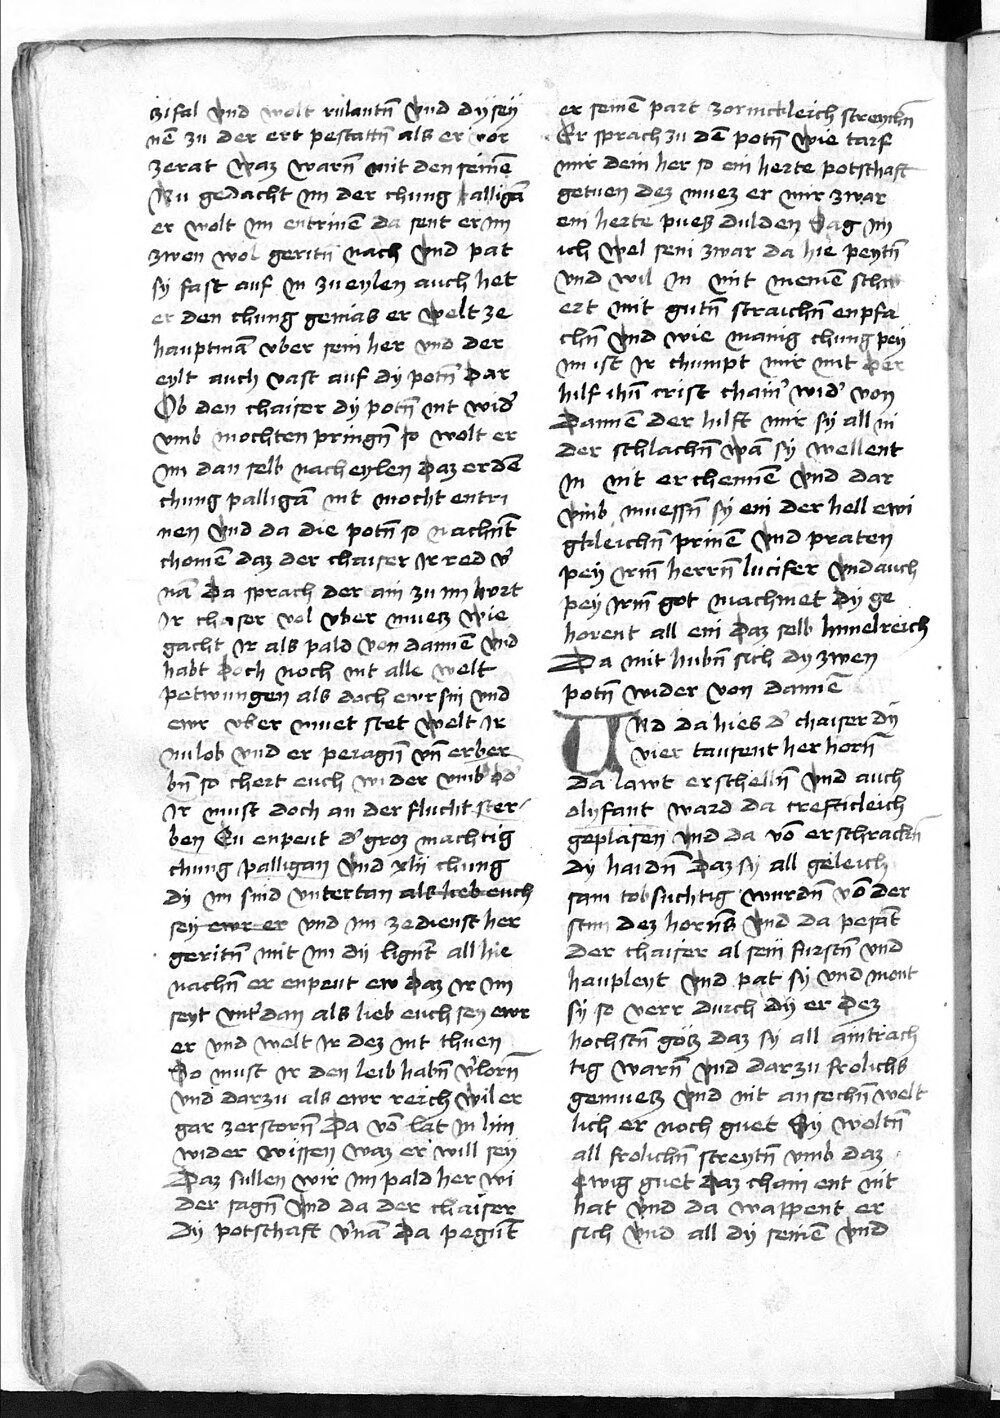 zifal vnd wolt rulantn̄ vnd dy seÿ
nē zu der ert pestattn̄ als er vor
zerat waz warn̄ mit den seinē
Nu gedacht im der chung palligā
er wolt im entrinē da sent er im
zwen wol geritn̄ nach vnd pat
sy fast auf in zu eylen auch het
er den chung genias er welt ze
hauptmā vber sein her vnd der
eylt auch vast auf dy potn̄ Dar
Ob den chaiser dy potn̄ nit wid̓
vmb mochten pringn̄ so wolt er
im dan selb nach eylen Daz er dē
chung palligā nit mocht entri
nen vnd da die potn̄ so nachnt̄
chomē daz der chaiser ir red v̓
nā Da sprach der ain zu im hort
ir chaiser vol vber muez wie
gacht ir als pald von dannē vnd
habt doch noch nit alle welt
petwungen als doch ewr sin vnd
ewr vber muet stet welt ir
nu lob vnd er peragn̄ vn̄ erber
bn̄ so chert euch wider vmb od̓
ir must doch an der flucht ster
ben Eu enpeut d̓ groz machtig
chung palligan vnd xlii chung
dy im sind vntertan als lieb euch
sey ewr er vnd im ze dienst her
geritn̄ mit im dy lignt̄ all hie
nachn̄ er enpeut ew daz ir im
seyt vnt̓dan als lieb euch sey ewr
er vnd welt ir dez nit thuen
So must ir den leib habn̄ v̓lorn̄
vnd darzu als ewr reich wil er
gar zerstorn̄ Da vō lat in hin
wider wissen waz er will seÿ
Daz sullen wir im pald her wi
der sagn̄ vnd da der chaiser
dy potschaft v̓nā Da pegūt
er seinē part zornickleich streychn̄
Er sprach zu dē potn̄ wie tarf
mir dein her so ein herte potschaft
getuen dez muez er mir zwar
ein herte pues dulden Sag im
ich wel sein zwar da hie peytn̄
vnd wil in mit meinē schw
ert mit gutn̄ straichn̄ enpfa
chn̄ vnd wie manig chung pey
im ist ir chumpt mir mit der
hilf ihū crist chain̓ wid̓ von
Dannē der hilft mir sy all in
der schlachn̄ wā sy wellent
in nit erchennē vnd dar
vmb muessn̄ sy ein der hell ewi
gkleichn̄ prinē vnd praten
pey irm̄ herrn̄ lucifer vnd auch
pey irm̄ got machmet dy ge
horent all ein daz selb himelreich
Da mit hubn̄ sich dy zwen
potn̄ wider von dannē
Und da hies d̓ chaiser dÿ
vier tausent her horn̄
da lawt erschelln̄ vnd auch
olyfant ward da creftickleich
geplasen vnd da vō erschrackn̄
dy haidn̄ Daz sy all geleich
sam tobsuchtig wurdn̄ vō der
stim dez horns vnd da pesāt
der chaiser al sein furstn̄ vnd
haupleyt vnd pat sy vnd mont
sy so verr durch dy er dez
hochstn̄ götz daz sy all aintrach
tig warn̄ vnd darzu frolichs
gemuetz vnd nit ansechn̄ welt
lich er noch guet Sy woltn̄
all frolichn̄ streytn̄ vmb daz
Ewig guet Daz chain ent nit
hat vnd da wappent er
sich vnd all dy seinē vnd